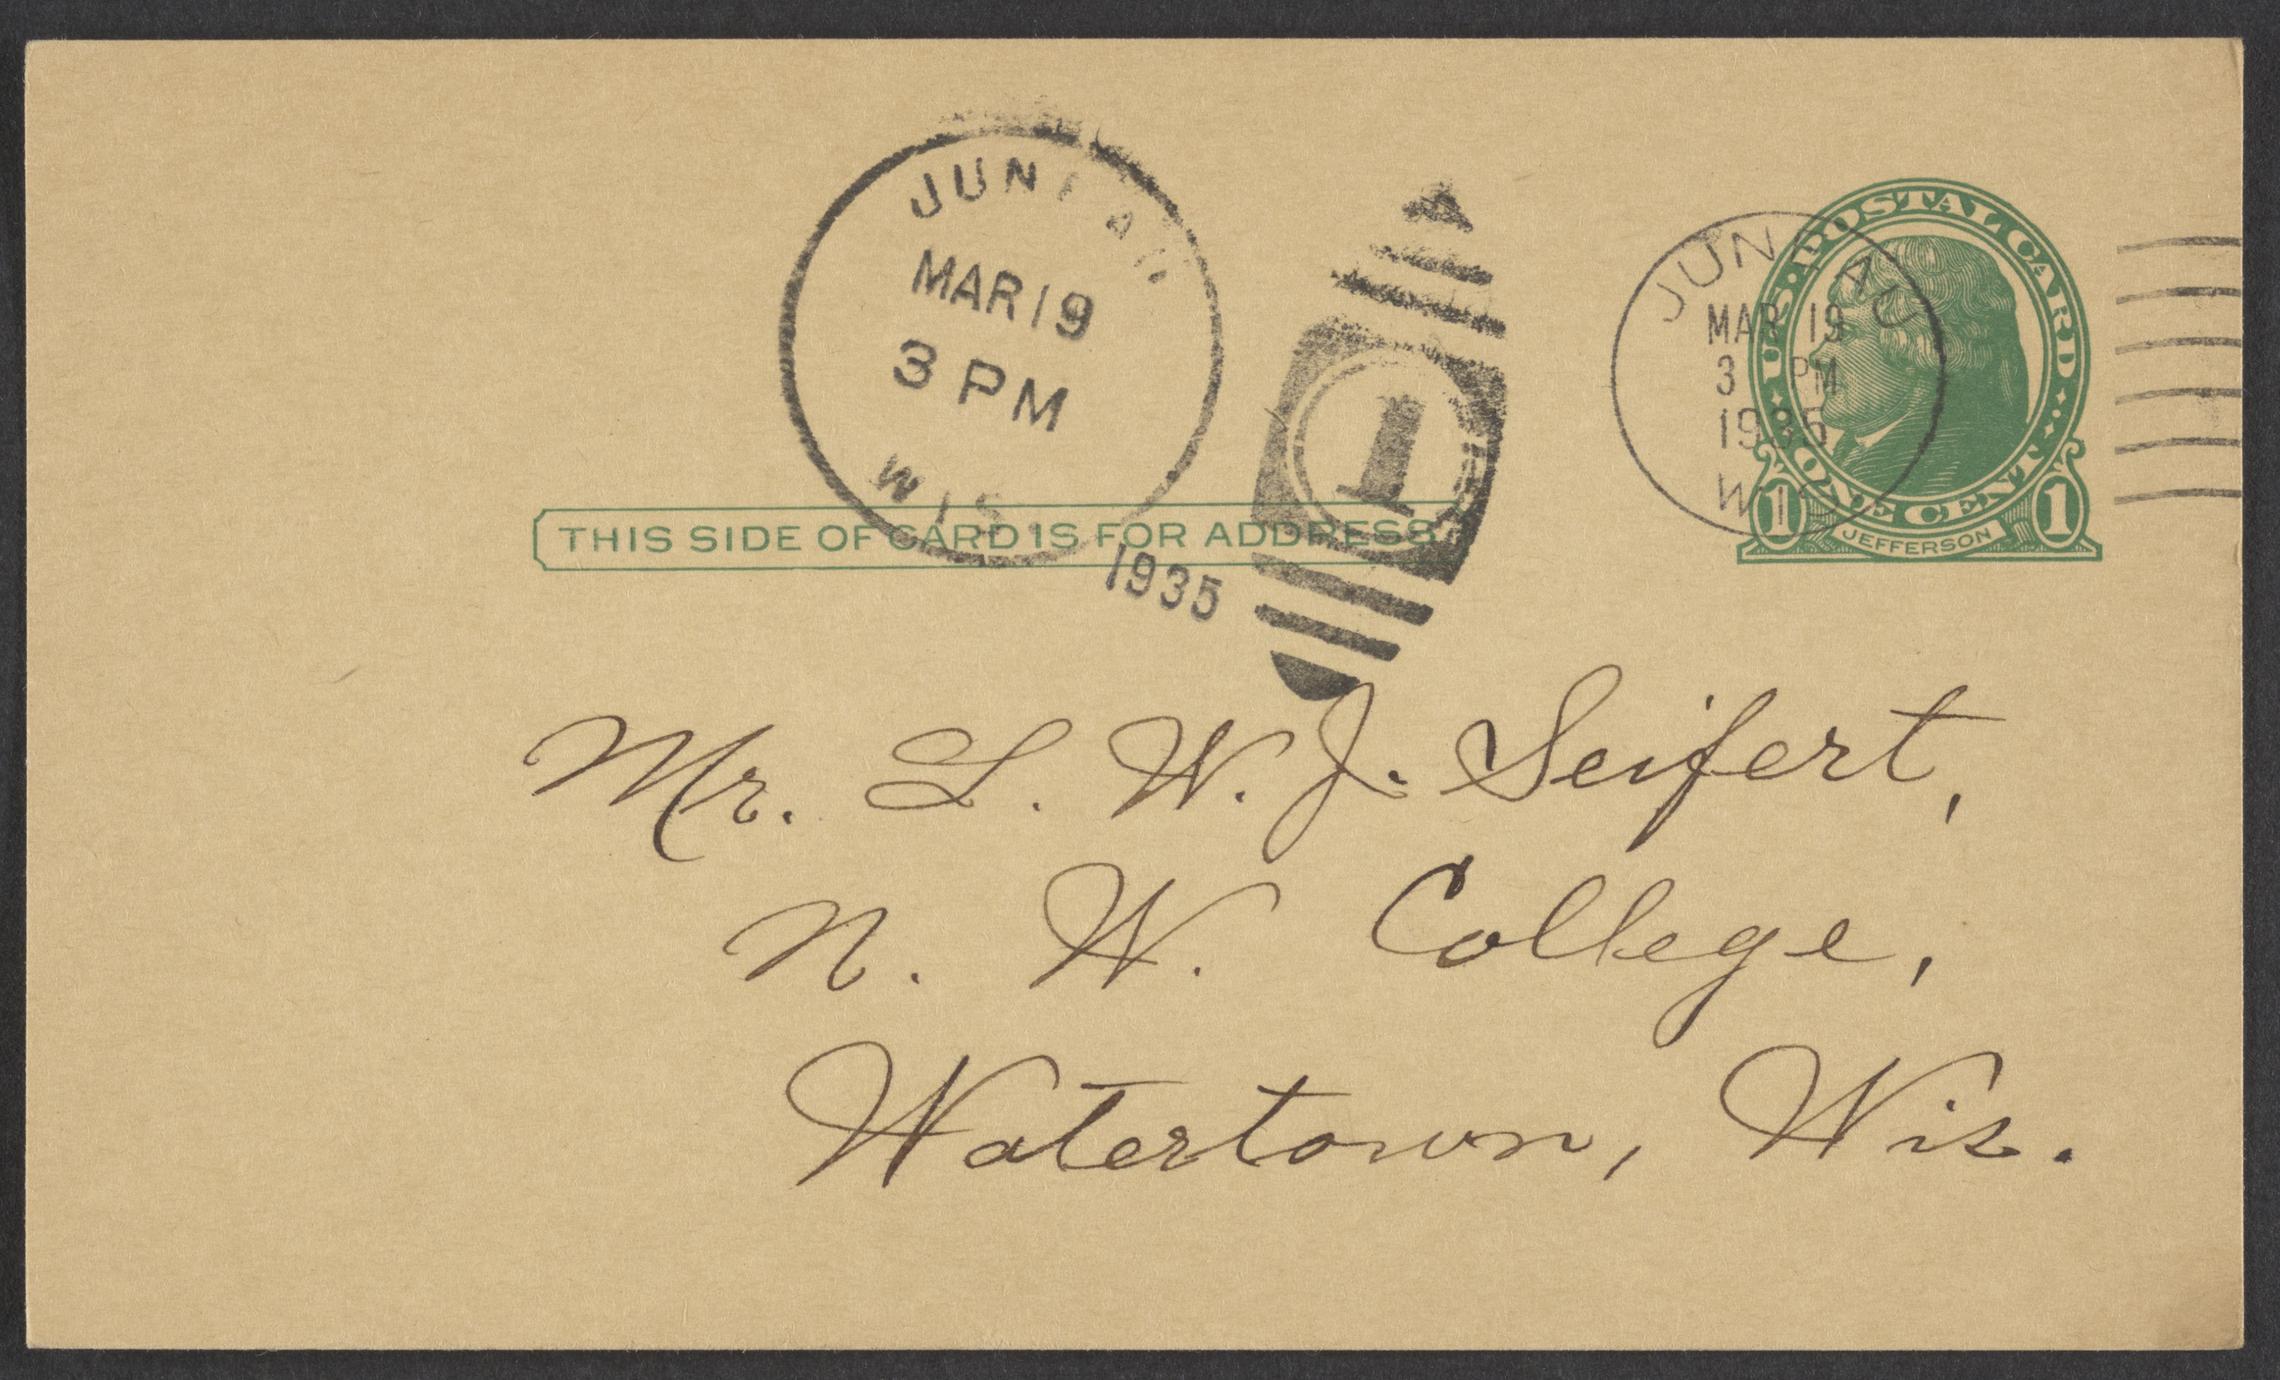 JUNEAU
MAR 19
3 PM
WIS.
1935
1
JUNEAU
MAR 19
3 PM
1935
WIS
U.S. POSTAL CARD
ONE CENT
1 JEFFERSON 1
THIS SIDE OF CARD IS FOR ADDRESS
Mr. L. W. J. Seifert,
N. W. College,
Watertown, Wis.